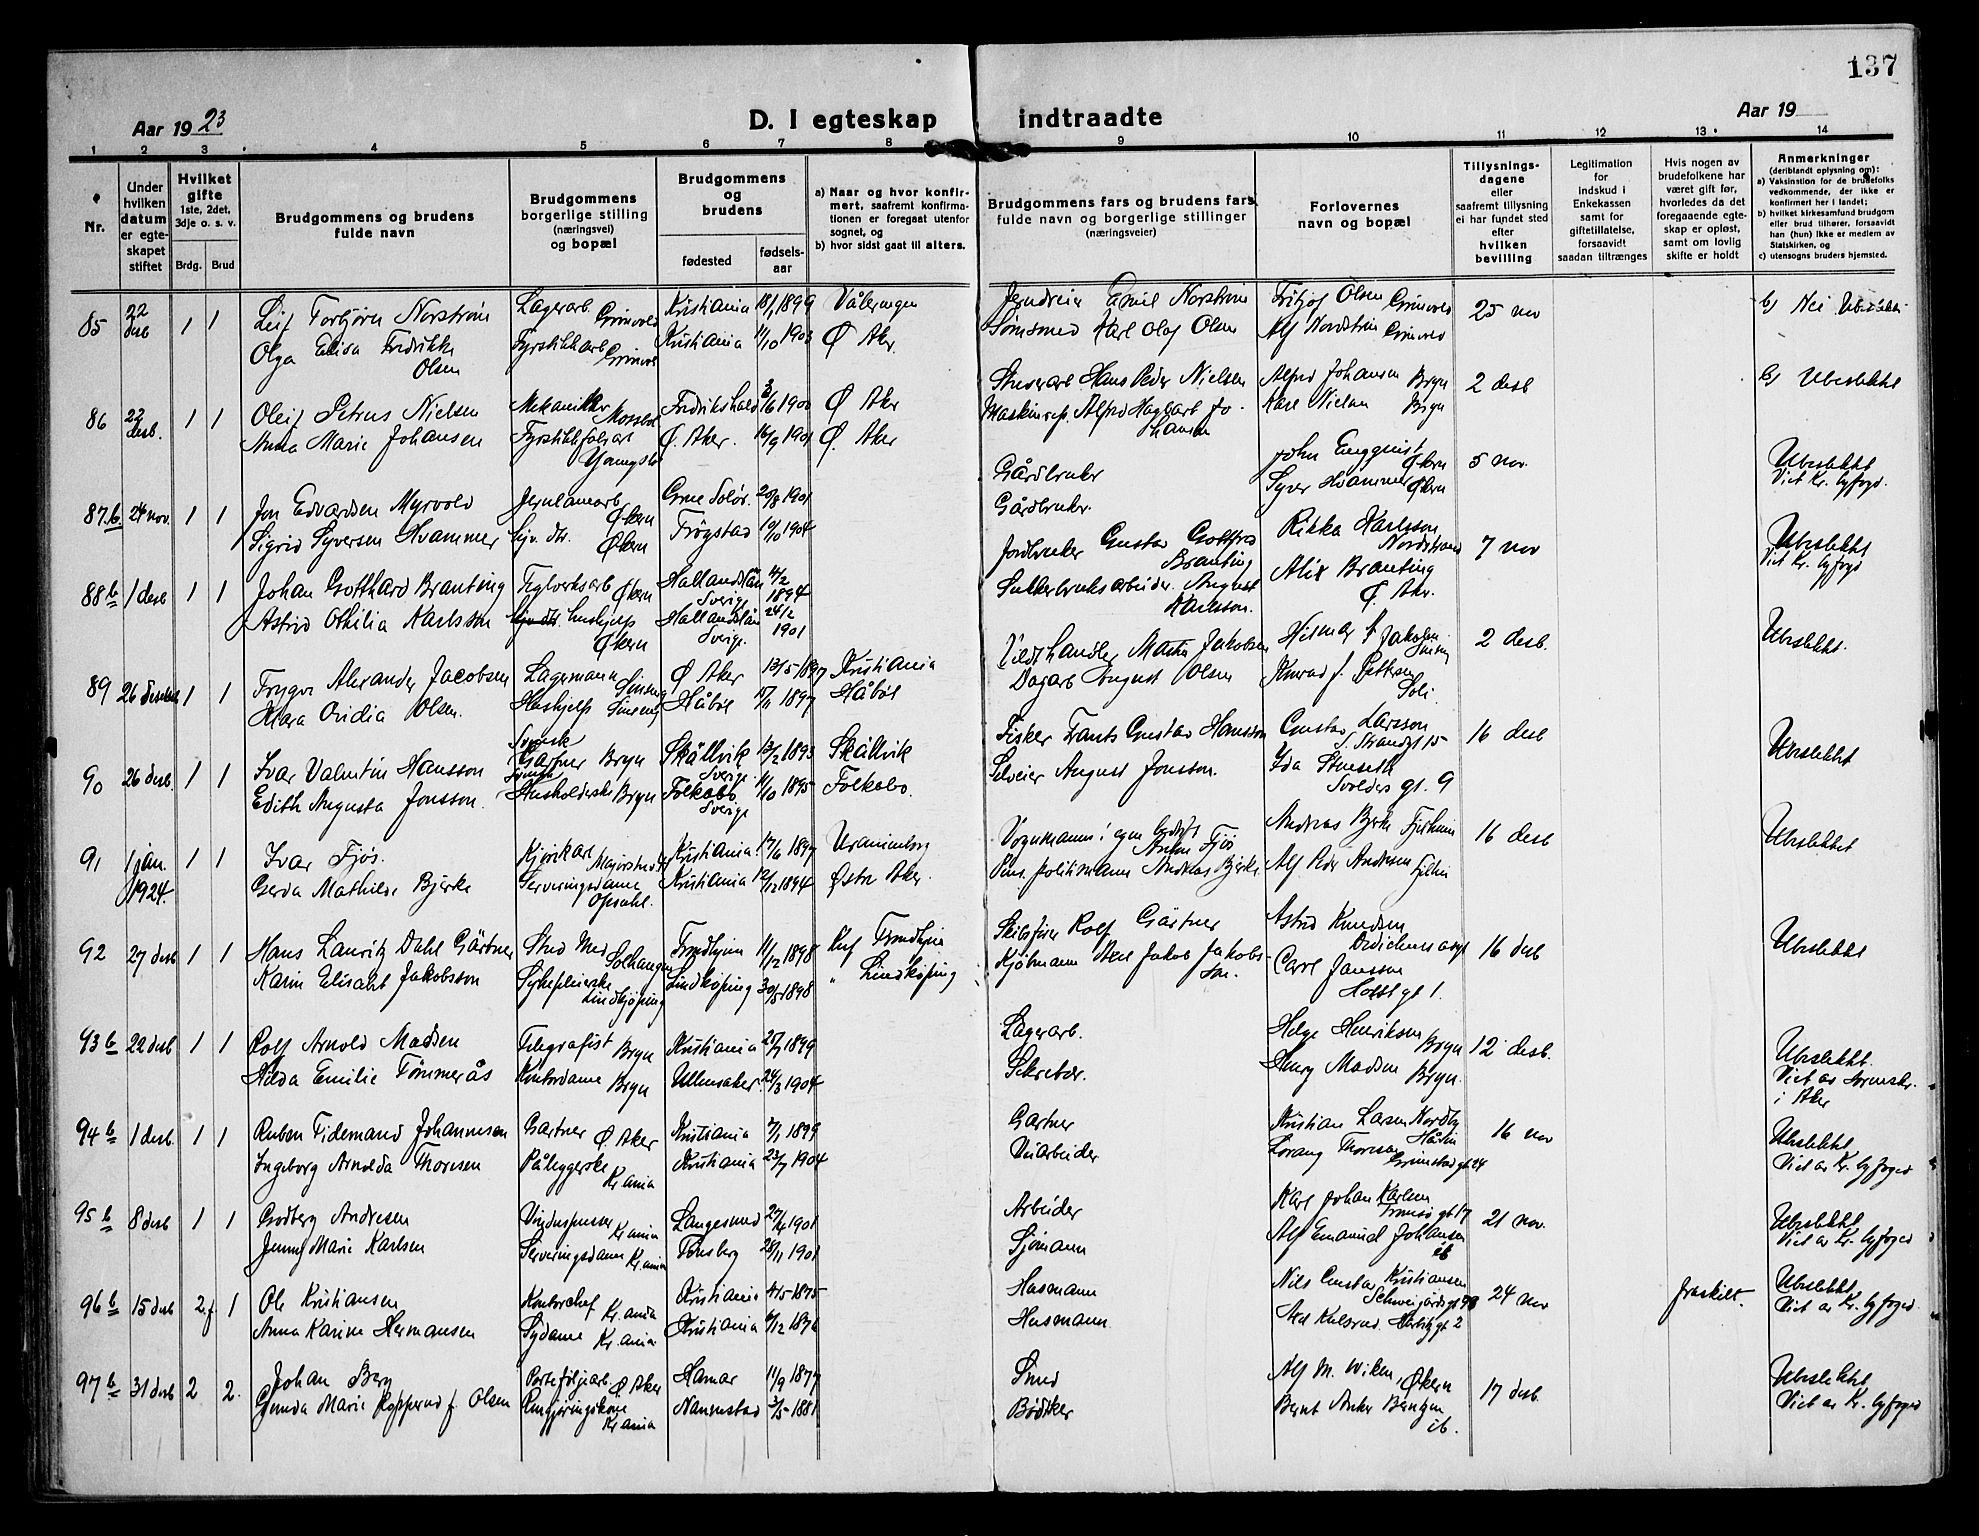 137
Aar 1923
D. I egteskap indtraadte
Aar 19
1 2 3 4 5 6 7 8 9 10 11 12 13 14
Nr.
Under hvilken datum er egteskapet stiftet
Hvilket gifte 1ste, 2det, 3dje o. s. v.
Brdg. Brud
Brudgommens og brudens fulde navn
Brudgommens borgerlige stilling (næringsvei) og bopæl
Brudgommens og brudens
fødested
fødsels-aar
a) Naar og hvor konfirmert, saafremt konfirmationen er foregaat utenfor sognet, og
b) hvor sidst gaat til alters.
Brudgommens fars og brudens fars fulde navn og borgerlige stillinger (næringsveier)
Forlovernes navn og bopæl
Tillysningsdagene eller saafremt tillysning ei har fundet sted efter hvilken bevilling
Legitimation for indskud i Enkekassen samt for giftetillatelse, forsaavidt saadan tiltrænges
Hvis nogen av brudefolkene har været gift før, hvorledes da det foregaaende egteskap er opløst, samt om lovlig skifte er holdt
Anmerkninger (deriblandt oplysning om):
a) Vaksinstion for de brudefolks vedkommende, der ikke er konfirmert her i landet;
b) hvilket kirkesamfund brudgom eller brud tilhører, forsaavidt han (hun) ikke er medlem av Statskirken, og
c) utensogns bruders hjemsted.
85 22 desb 1 1 Leif Torbjørn Norstrøm Lagerarb. Grinvold Kristiania 18/1 1899 Vålerengen Emil Norstrøm Fritjof Olsen Grinvold 25 nov b) Nei Ubeslektet
Olga Elisa Fredrikke Olsen Fyrstikkarb Grinvold Kristiania 11/10 1903 Ø Aker. Karl Olaf Olsen Alf Nordstrøm Grinvold
86 22 desb. 1 1 Oleif Petrus Nielsen Mekaniker Fredrikshald 1900 Ø Aker Hans Peder Nielsen Alfred Johansen Bryn 2 desb b) Ubeslektet
Anna Marie Johansen Ø. Aker. 16/9 1901 Ø. Aker Maskinrep. Alfred Hagbart Johansen Karl Nielsen Bryn
87.b 24 nov. 1 1 Jon Edvardsen Myrvold Økern Grue Solør 20/8 1901 Gårdbruker John Engquist Økern 5 nov. Ubeslektet
Sigrid Syversen Hvammer Økern Trøgstad 19/10 1904 Gårdbruker. Syver Hvammer Økern Viet Kr. byfogd.
88b 1 desb 1 1 Johan Gotthard Branting Teglverksarb Økern Hallandslän Sverige 4/2 1894 Jordbruker Gustav Gottfred Branting Rikka Karlsson Nordstrand 7 nov Ubeslektet
Astrid Othilia Karlsson hushjelp Økern Hallandslän Sverige 24/2 1901 Sukkerbruksarbeider August Karlsson. Alix Branting Ø. Akr. Viet Kr. byfogd
89 26 desemb 1 1 Trygve Alexander Jacobsen Lagermann Sinsen Ø Aker 13/5 1897 Kristiania Vildthandler Martin Jakobsen Hilmar Jakobsen Sinsen 2 desb. Ubeslektet.
Klara Ovidia Olsen. Hushjelp Sinsen Håbøl 1897 Håbøl Dagarb August Olsen Konrad J. Pettersen
90 26 desb. 1 1 Ivar Valentin Hansson Svensk Gartner Bryn Skällvik Sverige 13/2 1893 Skällvik Fisker Frants Gustav Hansson Gustav Larsson Strandgt 15 16 desb Ubeslektet
Edith Augusta Jonsson. Svensk Husholderske Bryn Folkabo Sverige 11/10 1895 Folkabo. Selveier August Jonsson. Ida Svolders gt. 9
91 1 jan. 1924. 1 1 Ivar Fjøs. Majorstuen Kristiania. 17/6 1897 Uranienborg Vognmann i egen bedrift Anton Fjøs Andreas Bjerke Fjelheim 16 desb Ubeslektet
Gerda Mathilde Bjerke Serveringsdame Opsahl. Kristiania 12/12 1894 Østre Aker. Pens. politimann Andreas Bjerke Alf Peder Andresen
92 27 desb 1 1 Hans Lauritz Dahl Gärtner Stud Med Solhaugen Trondhjem 11/12 1898 Kuf Trondhjem Skibsfører Rolf Gärtner Astrid Knudsen 16 desb Ubeslektet
Karin Elisabet Jakobsson Sykepleierske Lindkjøping Lindköping 30/5 1898 " Lindköping Kjøbmann Axel Jakob Jakobsson. Carl Jansson Holstgt 1.
93b 22 desb 1 1 Rolf Arnold Madsen Telegrafist Bryn Kristiania 25/7 1899 Lagerarb. Helge Henriksen Bryn 12 desb. Ubeslektet.
Hilda Emilie Tømmerås Kontordame Bryn Ullensaker 24/3 1904 Sekretær. Henry Madsen Bryn. Viet av sorenskr. i Aker
94b 1 desb. 1 1 Ruben Tidemand Johannesen Gartner Ø. Aker Kristiania 7/1 1899 Gartner Kristian Larsen Nordby 16 nov Ubeslektet.
Ingeborg Arnolda Thoresen Påleggerske Kr.ania Kristiania 23/7 1904 Thoresen Grimstadgt 24 Viet av Kr. byfoged
95b 8 desb 1 1 Godberg Andresen Vinduspusser Kr.ania Langesund 27/4 1901 Arbeider Karl Johan Karlsen Tromsøgt 17 21 nov. Ubeslektet
Jenny Marie Karlsen Serveringsdame Kr.ania Tønsberg 28/11 1901 Sjømann Alf Emanuel Johansen ib Viet av Kr. byfoged
96b 15 desb 2. f 1 Ole Kristiansen Kontorchef Kr.ania Kristiania 4/5-1875 Husmann Nils Gustav Kristiansen Schweigårdsgt 98 24 nov fraskilt. Ubeslektet
Anna Karine Hermansen Sydame Kr.ania Kristiania 6/12 1876 Husmann Viet av Kr. byfoged
97b 31 desb 2 2. Johan Berg Porteføljearb. Ø. Aker Hamar 11/9 1877 Smed Alf M. Wiken, Økern 17 desb. Ubeslektet
Gunda Marie Kopperud f. Olsen Rengjøringskone Kr.ania Nannestad 3/5 1881 Bødker Bernt Anker Berntzen ib. Viet av Kr. byfoged